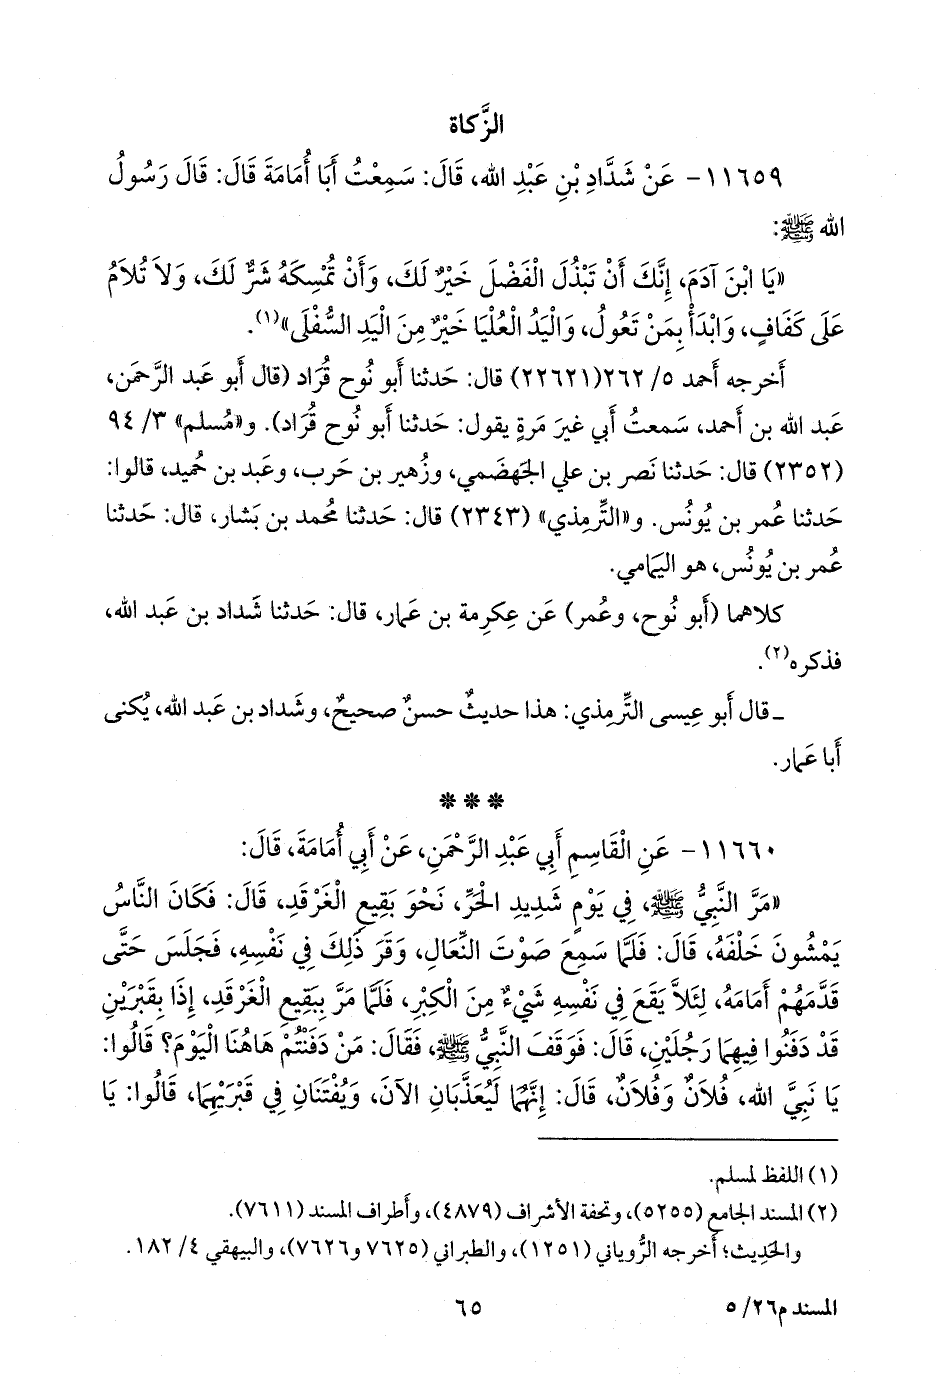 الزَّكاة
١١٦٥٩- عَنْ شَدَّادِ بْنِ عَبْدِ الله، قَالَ: سَمِعْتُ أَبَا أُمَامَةَ قَالَ: قَالَ رَسُولُ
الله ﷺ:
«يَا ابْنَ آدَمَ، إِنَّكَ أَنْ تَبْذُلَ الْفَضْلَ خَيْرٌ لَكَ، وَأَنْ تُمْسِكَهُ شَرٌّ لَكَ، وَلاَ تُلاَمُ
عَلَى كَفَافٍ، وَابْدَأْ بِمَنْ تَعُولُ، وَالْيَدُ الْعُلْيَا خَيْرٌ مِنَ الْيَدِ السُّفْلَى»(١).
أَخرجه أَحمد ٥/ ٢٦٢(٢٢٦٢١) قال: حَدثنا أَبو نُوح قُرَاد (قال أَبو عَبد الرَّحمَن،
عَبد الله بن أَحمد، سَمعتُ أَبي غيرَ مَرةٍ يقول: حَدثنا أَبو نُوح قُرَاد). و«مُسلم» ٣/ ٩٤
(٢٣٥٢) قال: حَدثنا نَصر بن علي الجَهضَمي، وزُهير بن حَرب، وعَبد بن حُميد، قالوا:
حَدثنا عُمر بن يُونُس. و«التِّرمِذي» (٢٣٤٣) قال: حَدثنا مُحمد بن بَشار، قال: حَدثنا
عُمر بن يُونُس، هو اليَمامي.
كلاهما (أَبو نُوح، وعُمر) عَن عِكرِمة بن عَمار، قال: حَدثنا شَداد بن عَبد الله،
فذكره(٢).
ـ قال أَبو عِيسى التِّرمِذي: هذا حديثٌ حسنٌ صحيحٌ، وشَداد بن عَبد الله، يُكنى
أَبا عَمار.
* * *
١١٦٦٠- عَنِ الْقَاسِمِ أَبِي عَبْدِ الرَّحْمَنِ، عَنْ أَبِي أُمَامَةَ، قَالَ:
«مَرَّ النَّبِيُّ ﷺ، فِي يَوْمٍ شَدِيدِ الْحَرِّ، نَحْوَ بَقِيعِ الْغَرْقَدِ، قَالَ: فَكَانَ النَّاسُ
يَمْشُونَ خَلْفَهُ، قَالَ: فَلَمَّا سَمِعَ صَوْتَ النِّعَالِ، وَقَرَ ذَلِكَ فِي نَفْسِهِ، فَجَلَسَ حَتَّى
قَدَّمَهُمْ أَمَامَهُ، لِئَلاَّ يَقَعَ فِي نَفْسِهِ شَيْءٌ مِنَ الْكِبْرِ، فَلَمَّا مَرَّ بِبَقِيعِ الْغَرْقَدِ، إِذَا بِقَبْرَيْنِ
قَدْ دَفَنُوا فِيهِمَا رَجُلَيْنِ، قَالَ: فَوَقَفَ النَّبِيُّ ﷺ، فَقَالَ: مَنْ دَفَنْتُمْ هَاهُنَا الْيَوْمَ؟ قَالُوا:
يَا نَبِيَّ الله، فُلاَنٌ وَفُلاَنٌ، قَالَ: إِنَّهُمَا لَيُعَذَّبَانِ الآنَ، وَيُفْتَنَانِ فِي قَبْرَيْهِمَا، قَالُوا: يَا
(١) اللفظ لمسلم.
(٢) المسند الجامع (٥٢٥٥)، وتحفة الأشراف (٤٨٧٩)، وأَطراف المسند (٧٦١١).
والحَدِيث؛ أَخرجه الرُّوياني (١٢٥١)، والطبراني (٧٦٢٥ و٧٦٢٦)، والبيهقي ٤/ ١٨٢.
المسند م٢٦/ ٥
٦٥